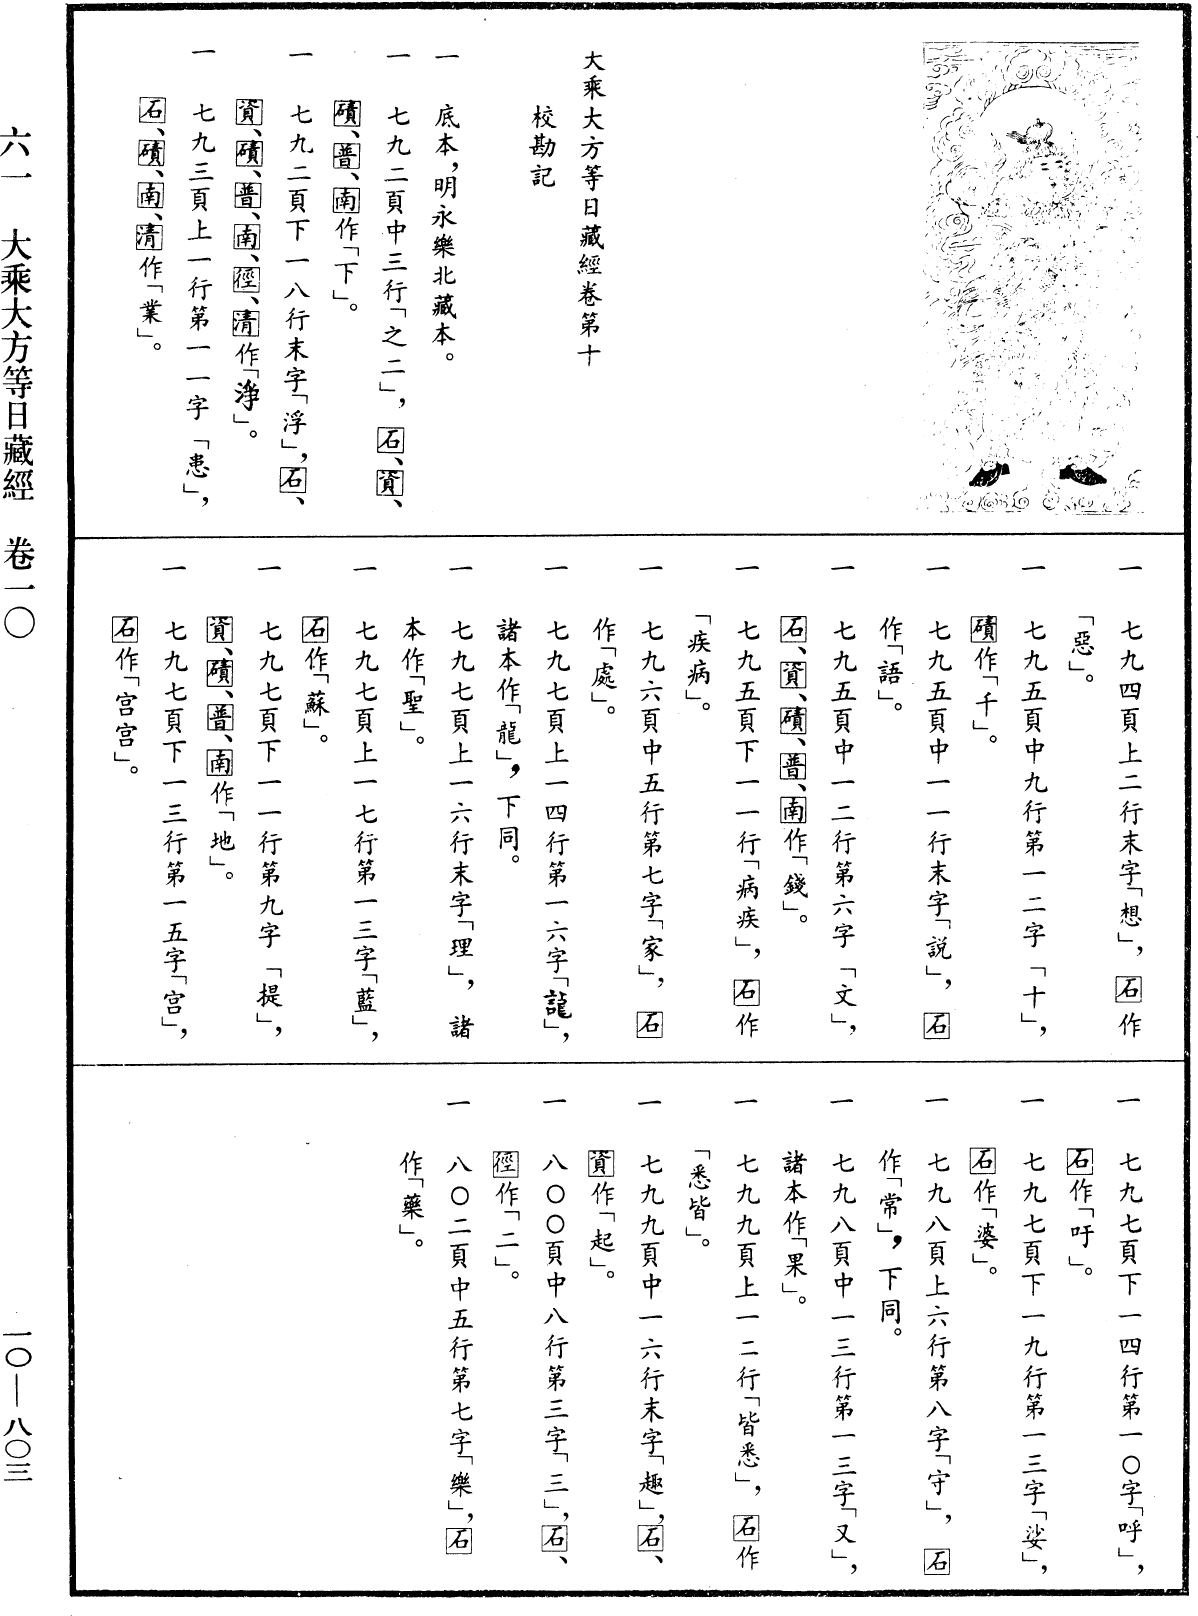 大乘大方等日藏經卷第十
校勘記
一　底本，明永樂北藏本。
一　七九二頁中三行「之二」，石、資、
磧、普、南作「下」。
一　七九二頁下一八行末字「浮」，石、
資、磧、普、南、徑、清作「淨」。
一　七九三頁上一行第一一字「患」，
石、磧、南、清作「業」。
一　七九四頁上二行末字「想」，石作
「惡」。
一　七九五頁中九行第一二字「十」，
磧作「千」。
一　七九五頁中一一行末字「説」，石
作「語」。
一　七九五頁中一二行第六字「文」，
石、資、磧、普、南作「錢」。
一　七九五頁下一一行「病疾」，石作
「疾病」。
一　七九六頁中五行第七字「家」，石
作「處」。
一　七九七頁上一四行第一六字「龍」，
諸本作「龍」，下同。
一　七九七頁上一六行末字「理」，諸
本作「聖」。
一　七九七頁上一七行第一三字「藍」，
石作「蘇」。
一　七九七頁下一一行第九字「提」，
資、磧、普、南作「地」。
一　七九七頁下一三行第一五字「宫」，
石作「宫宫」。
一　七九七頁下一四行第一〇字「呼」，
石作「吁」。
一　七九七頁下一九行第一三字「娑」，
石作「婆」。
一　七九八頁上六行第八字「守」，石
作「常」，下同。
一　七九八頁中一三行第一三字「又」，
諸本作「果」。
一　七九九頁上一二行「皆悉」，石作
「悉皆」。
一　七九九頁中一六行末字「趣」，石、
資作「起」。
一　八〇〇頁中八行第三字「三」，石、
徑作「二」。
一　八〇二頁中五行第七字「樂」，石
作「藥」。
六一　大乘大方等日藏經　卷一〇
一〇—八〇三